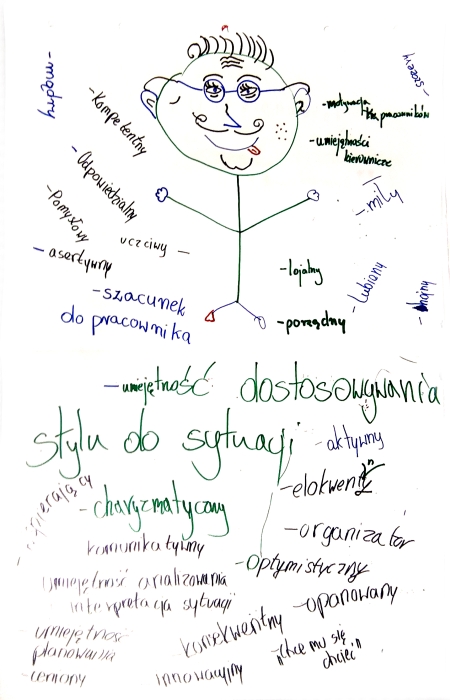 - mądry
- Kompetentny
- Odpowiedzialny
- Pomysłowy
uczciwy -
- asertywny
- szacunek
do pracownika
- szczery
- motywacja dla pracowników
- umiejętności
kierownicze
- miły
- lojalny
- lubiany
- hojny
- porządny
- umiejętność dostosowywania
stylu do sytuacji
- aktywny
- charyzmatyczny
- elokwentny
komunikatywny
- organizator
- optymistyczny
umiejętność analizowania
interpretacja sytuacji
- opanowany
- umiejętność
planowania
- konsekwentny
- "chce mu się
chcieć"
- ceniony
innowacyjny